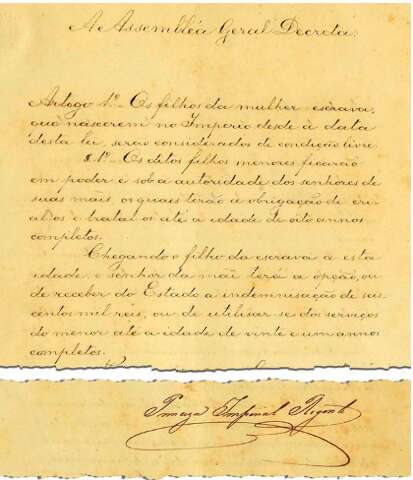 A Assembléa Geral Decreta:
Artogo 1º - Os filhos da mulher escrava,
que nascerem no Imperio desde a data
desta lei, serão considerados de condição livre.
§ 1º - Os ditos filhos menores ficarão
em poder e sob a autoridade dos senhores de
suas mais, os quaes terão a obrigação de cri-
al-os e tratal-os até a idade de oito annos
completos.
Chegando o filho da escrava a esta
idade, o senhor da mãi terá a opção, ou
de receber do Estado a indemnisação de seis
centos mil reis, ou de utilisar-se dos serviços
do menor até a idade de vinte e um annos
completos.
Princeza Imperial Regente